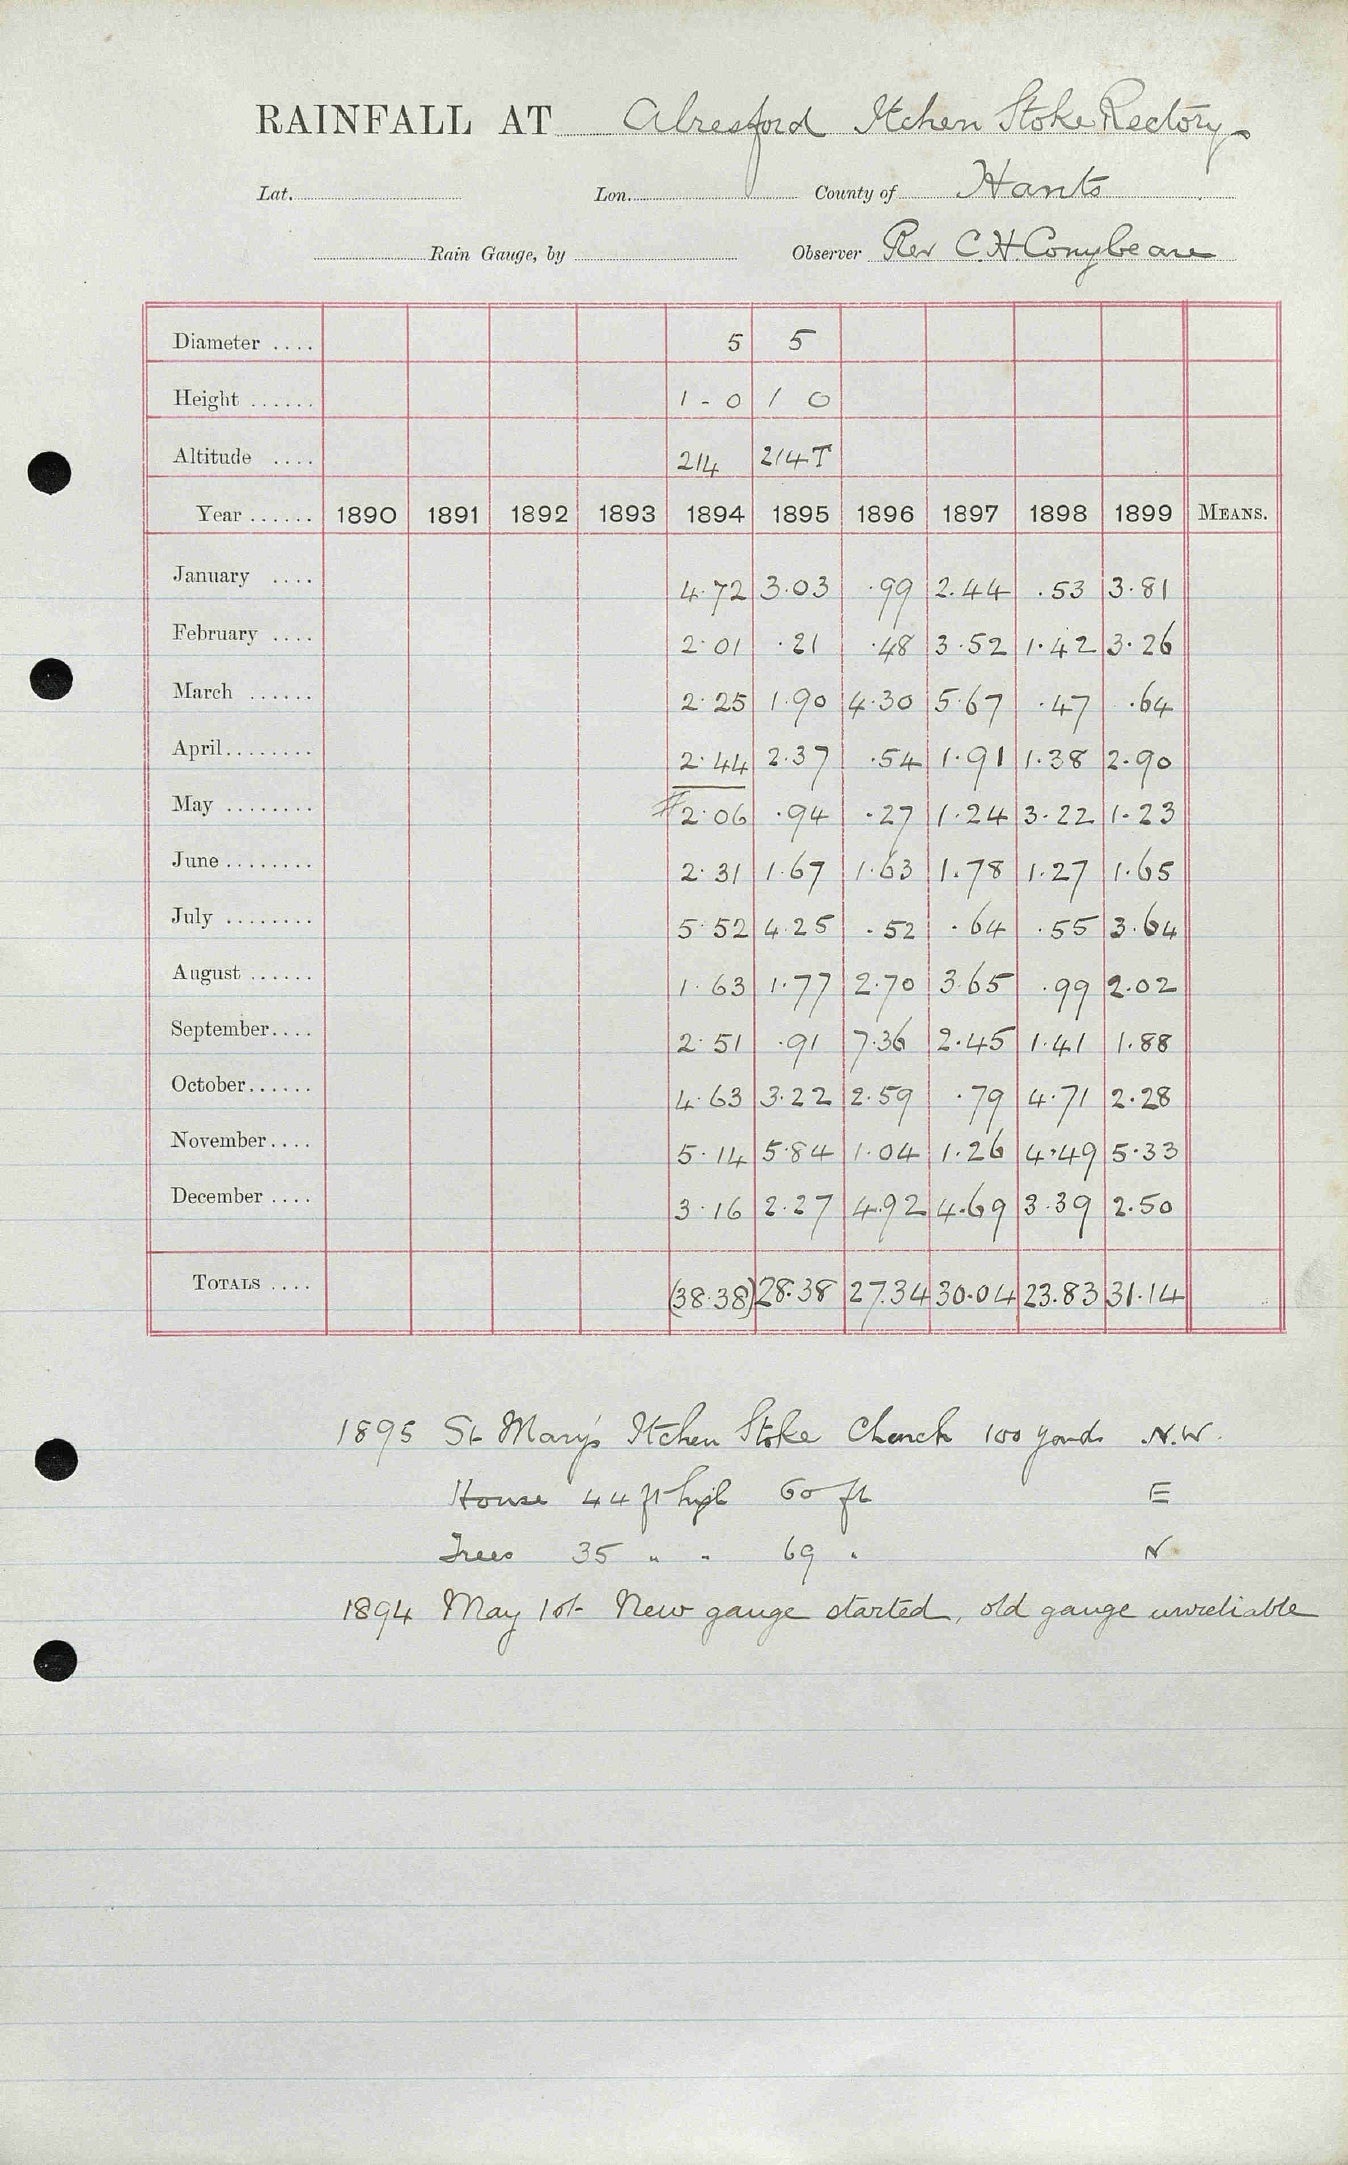 RAINFALL AT Alresford Itchen Stoke Rectory
Lat. Lon. County of Hants
Rain Gauge, by Observer Rev C. H Conybeare
Diameter .... 5 5
Height ...... 1 - 0 1 0
Altitude .... 214 214 T
Year ...... 1890 1891 1892 1893 1894 1895 1896 1897 1898 1899 MEANS.
January .... 4.72 3.03 .99 2.44 .53 3.81
February .... 2.01 .21 .48 3.52 1.42 3.26
March ...... 2.25 1.90 4.30 5.67 .47 .64
April ........ 2.44 2.37 .54 1.91 1.38 2.90
May ........ #2.06 .94 .27 1.24 3.22 1.23
June ........ 2.31 1.67 1.63 1.78 1.27 1.65
July ........ 5.52 4.25 .52 .64 .55 3.64
August ...... 1.63 1.77 2.70 3.65 .99 2.02
September.... 2.51 .91 7.36 2.45 1.41 1.88
October...... 4.63 3.22 2.59 .79 4.71 2.28
November.... 5.14 5.84 1.04 1.26 4.49 5.33
December .... 3.16 2.27 4.92 4.69 3.39 2.50
TOTALS .... (38.38) 28.38 27.34 30.04 23.83 31.14
1895 St Mary's Itchen Stoke Church 100 yards N.W.
House 44 ft high 60 ft E
Trees 35 " " 69 " N
1894 May 1st New gauge started, old gauge unreliable